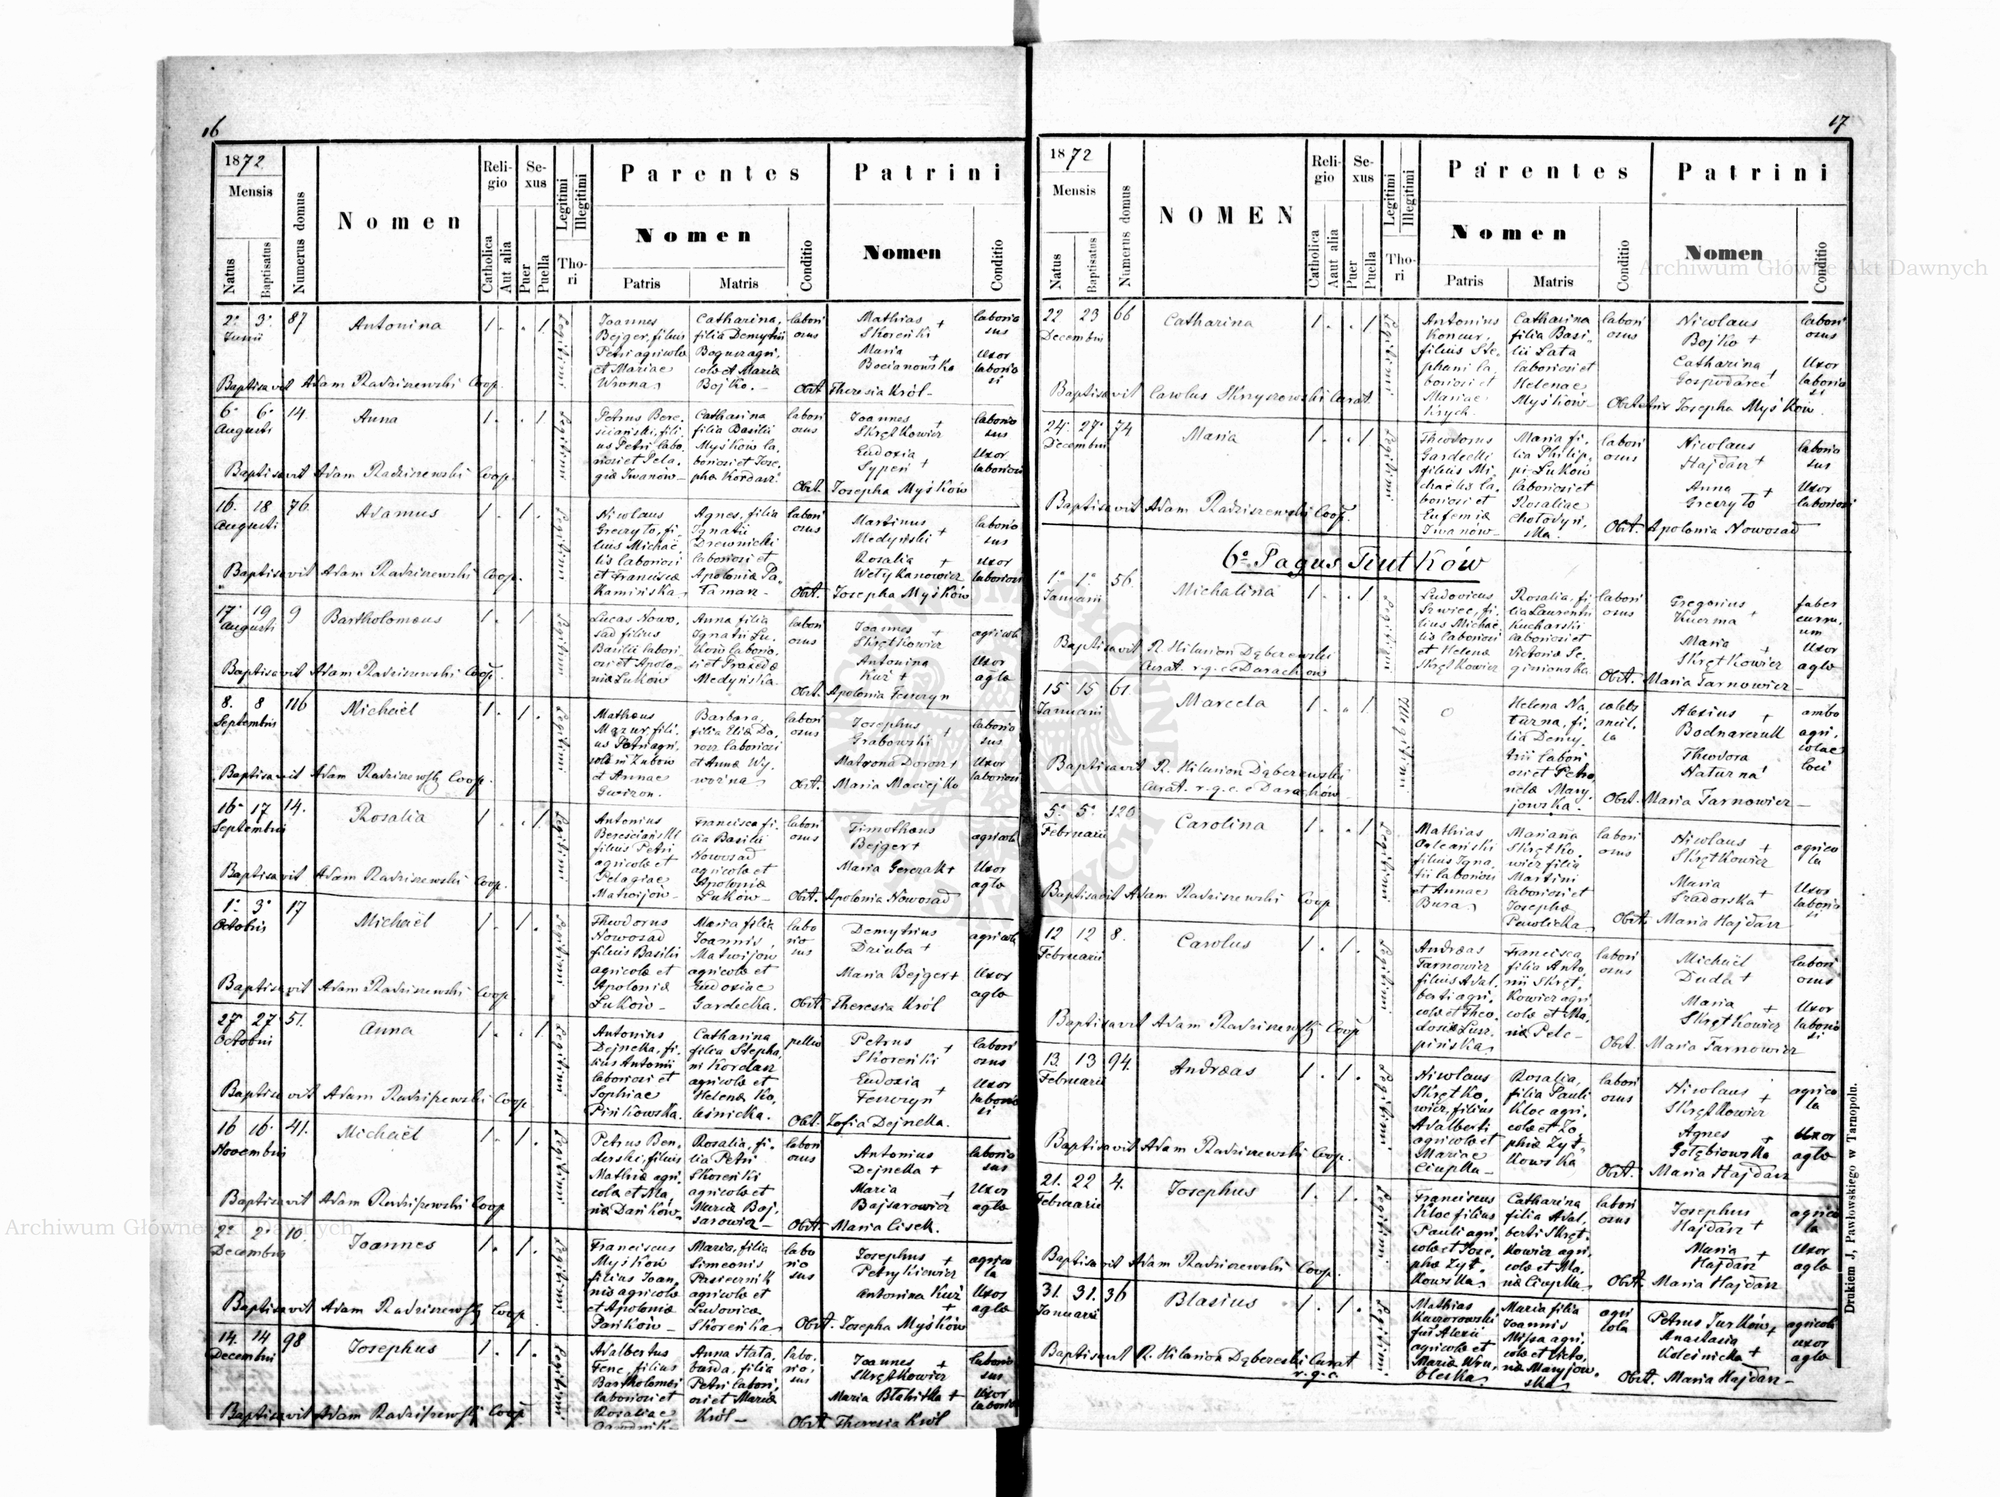 16
1872
Mensis
Natus
Baptisatus
Numerus domus
Nomen
Religio
Catholica
Aut alia
Sexus
Puer
Puella
Legitimi
Illegitimi
Thori
Parentes
Nomen
Patris
Matris
Conditio
Patrini
Nomen
Conditio
2. 3. 87 Antonina
Junii
Joannes
Bejger, filius
Petri agricolæ
et Mariae
Wrona
Catharina,
filia Demytrii
agri,
colæ et Mariæ
Bojko.
labori
osus
Mathias +
Skoreński
Maria
Bocianowska +
laborio
sus
Uxor
laborio
si
Baptisavit Adam Radziszewski Coop.
Obst. Theresia Król
6. 6. 14. Anna
Augusti
Petrus Bere
ściański, fili
us Petri labo
riosi et Pela
giæ Iwanów
Catharina
filia Basilii
Myśków la
boriosi et Jose
phæ Kordasz
labori
osus
Joannes +
Skrętkowicz
Eudoxia
Sypeń +
laborio
sus
Uxor
laboriosi
Baptisavit Adam Radziszewski Coop.
Obst. Josepha Myśków
16. 18 76. Adamus
Augusti
Nicolaus
Greczyło, fi
lius Michaë
lis laboriosi
et Franciscæ
Kamińska
Agnes, filia
Ignatii
Drewnicki
laboriosi et
Apoloniæ Pa
tamar
labori
osus
Martinus
Medyński +
Rosalia +
Wełykanowicz
laborio
sus
uxor
laboriosi
Baptisavit Adam Radziszewski Coop.
Obst. Josepha Myśków
17. 19 9 Bartholomæus
Augusti
Lucas Nowo
sad filius
Basilii labori
osi et Apolo
niæ Luków
Anna filia
Ignatii Lu
ków laborio
si et Praxedæ
Medyńska
labori
osus
Joannes +
Skrętkowicz
Antonina
Kuź +
agricola
Uxor
aglæ
Baptisavit Adam Radziszewski Coop.
Obst. Apolonia Feszczyn
8. 8 116 Michaël
Septembris
Mathæus
Mazur, fili
us Petri agri
colæ
et Annae
Barbara,
filia Eliæ Do
rosz laboriosi
et Annæ Wy
labori
osus
Josephus
Grabowski +
Matrona Dorosz +
laborio
sus
Uxor
laboriosi
Baptisavit Adam Radziszewski Coop.
Obst. Maria Maciejko
16 17 14. Rosalia
Septembris
Antonius
Bereściański
filius Petri
agricolæ et
Pelagiae
Matwijów
Francisca fi
lia Basilii
Nowosad
agricolæ et
Apoloniæ
Luków
labori
osus
Timothæus
Bejger +
Maria Gerczak +
agricola
Uxor
aglæ
Baptisavit Adam Radziszewski Coop.
Obst. Apolonia Nowosad
1. 3. 17 Michaël
Octobris
Theodorus
Nowosad
filius Basilii
agricolæ et
Apoloniæ
Luków
Maria filia
Joannis
Matwijów
agricolæ et
Eudoxiae
Gardecka.
labo
rio
sus
Demytrius
Dziuba +
Maria Bejger +
agricola
Uxor
aglæ
Baptisavit Adam Radziszewski Coop
Obst. Theresia Król
27 27 51. Anna
Octobris
Antonius
Dejneka, fi
lius Antonii
laboriosi et
Sophiae
Pińkowska.
Catharina
filia Stepha
ni Kordasz
agricolæ et
Helenæ Ko
leśnicka.
pellio
Petrus +
Skoreński
Eudoxia
Feszczyn +
labori
osus
Uxor
laborio
si
Baptisavit Adam Radziszewski Coop
Obst. Zofia Dejneka.
16 16 41. Michaël
Novembris
Petrus Ben
derski, filius
Mathiæ agri
colæ et Ma
riæ Dańków
Rosalia, fi
lia Petri
Skoreński
agricolæ et
Mariæ Baj
sarowicz
labori
osus
Antonius
Dejneka +
Maria +
Bajsarowicz
laborio
sus
Uxor
aglæ
Baptisavit Adam Radziszewski Coop
Obst. Maria Lisek.
2. 2. 10. Joannes
Decembris
Franciscus
Myśków
filius Joan
nis agricolæ
et Apoloniæ
Pańków
Maria, filia
Simeonis
Pasiecznik
agricolæ et
Ludovicæ
Skoreńska
labo
rio
sus
Josephus +
Petrykiewicz
Antonina Kuź +
agrico
la
Uxor
aglæ
Baptisavit Adam Radziszewski Coop
Obst. Josepha Myśków
14. 14 98 Josephus
Decembris
Adalbertus
Fenc, filius
Bartholomæi
laboriosi et
Rosaliae
Anna Hata
burda, filia
Petri labori
osi et Mariæ
Król
labo
rio
sus
Joannes +
Skrętkowicz
Maria Błahitka +
laborio
sus
Uxor
laboriosi
Baptisavit Adam Radziszewski Coop
Obst. Theresia Król
17
1872
Mensis
Natus
Baptisatus
Numerus domus
NOMEN
Religio
Catholica
Aut alia
Sexus
Puer
Puella
Legitimi
Illegitimi
Thori
Parentes
Nomen
Patris
Matris
Conditio
Patrini
Nomen
Conditio
22 23 66 Catharina
Decembris
Antonius
Koncur,
filius Ste
phani la
boriosi et
Mariae
Krych.
Catharina
filia Basi
lii Łata
laboriosi et
Helenae
Myśków
labori
osus
Nicolaus
Bojko +
Catharina +
Gospodarec
labori
osus
Uxor
laborio
si
Baptisavit Carolus Skrzyszowski Curat.
Josepha Myśków.
24. 27. 74 Maria
Decembris
Theodorus
Gardecki
filius Mi
chaëlis la
boriosi et
Eufemiæ
Iwanów
Maria fi
lia Philip
pi Luków
laboriosi et
Rosaliae
Chołodyń
ska
labori
osus
Nicolaus
Hajdasz +
Anna +
Greczyło
laborio
sus
Uxor
laboriosi
Baptisavit Adam Radziszewski Coop.
Obst. Apolonia Nowosad
6o Pagus Tiutków
1. 1. 56. Michalina
Januarii
Ludovicus
Szwiec, fi
lius Michaë
lis laboriosi
et Helenæ
Skrętkowicz
Rosalia, fi
lia Laurentii
Kucharski
laboriosi et
Victoriæ Se
giniowska
labori
osus
Gregorius
Kuczma +
Maria +
Skrętkowicz
faber
curru
um
Uxor
aglæ
Baptisavit R. Hilarion Dąberowski
Curat. r. g. c. e Darachów
Obst. Maria Tarnowicz
15 15 61. Marcela
Januarii
Helena Na
turna, fi
lia Demy
trii labori
osi et Petro
nelæ Mary
jowska.
cælebs
ancil
la
Alexius +
Bodnarczuk
Theodora
Naturna
ambo
agri
colae
loci
Baptisavit R. Hilarion Dąberowski
Curat. r. g. c. e Darachów
Obst. Maria Tarnowicz
5. 5. 120 Carolina
Februarii
Mathias
Orleański
filius Igna
tii laboriosi
et Annae
Bura
Mariana
Skrętko
wicz filia
Martini
laboriosi et
Josephæ
Pawlicka
labori
osus
Nicolaus +
Skrętkowicz
Maria
Szadorska +
agrico
la
Uxor
laborio
si
Baptisavit Adam Radziszewski Coop
Obst. Maria Hajdasz
12 12 8. Carolus
Februarii
Andræas
Tarnowicz
filius Adal
berti agri
colæ et Theo
dosiæ
Francisca
filia Anto
nii Skręt
kowicz agri
colæ et Ma
riæ Pele
labori
osus
Michaël
Duda +
Maria +
Skrętkowicz
labori
osus
Uxor
laborio
si
Baptisavit Adam Radziszewski Coop
Obst. Maria Tarnowicz
13. 13 94. Andræas
Februarii
Nicolaus
Skrętko
wicz, filius
Adalberti
agricolæ et
Mariae
Ciupka
Rosalia,
filia Pauli
Kloc agri
colæ et So
phiæ Żyt
kowska
labori
osus
Nicolaus +
Skrętkowicz
Agnes
Gołębiowska +
agrico
la
Uxor
aglæ
Baptisavit Adam Radziszewski Coop.
Obst. Maria Hajdasz
21. 22 4. Josephus
Februarii
Franciscus
Kloc filius
Pauli agri
colæ et Jose
phæ Żyt
kowska
Catharina
filia Adal
berti Skręt
kowicz agri
colæ et Ma
riæ Ciupka
labori
osus
Josephus
Hajdasz +
Maria +
Hajdasz
agrico
la
Uxor
aglæ
Baptisavit Adam Radziszewski Coop.
Obst. Maria Hajdasz
31. 31. 36 Blasius
Januarii
Mathias
Kaczorowski
fil. Alexii
agricolæ et
Mariæ Wru
bleska
Maria filia
Joannis
Missa agri
colæ et Victo
riæ Maryjow
ska
agri
cola
Petrus Jurków +
Anastasia
Koleśnicka +
agricola
uxor
aglæ
Baptisavit R. Hilarion Dąberoski Curat
r. g. c.
Obst. Maria Hajdasz
Drukiem J. Pawłowskiego w Tarnopolu.
Archiwum Główne Akt Dawnych
Archiwum Główne Akt Dawnych
Archiwum Główne Akt Dawnych